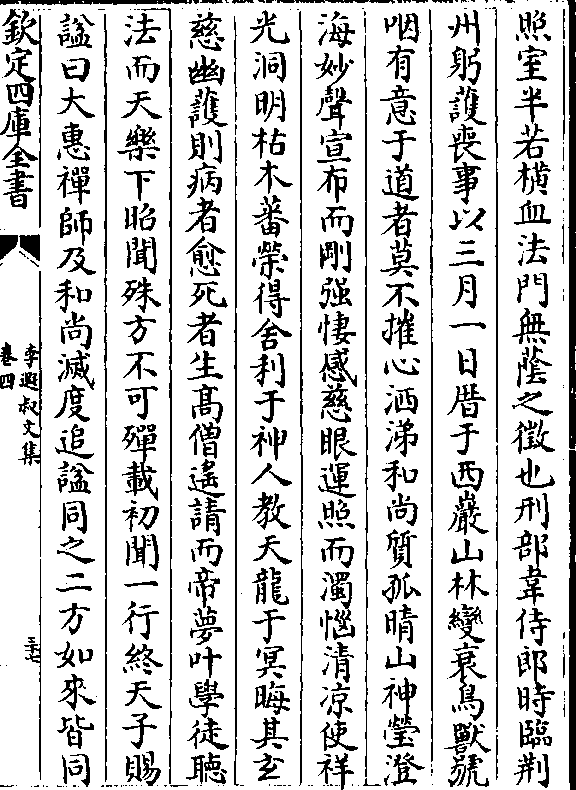 照室半若橫血法門無蔭之徵也刑部韋侍郎時臨荆
州躬護喪事以三月一日厝于西巖山林變衰鳥獸號
咽有意于道者莫不摧心洒涕和尚質孤晴山神瑩澄
海妙聲宣布而剛强悽感慈眼運照而濁惱清凉使祥
光洞明枯木蕃榮得舍利于神人教天龍于冥晦其玄
慈幽護則病者愈死者生高僧遙請而帝夢叶學徒聽
法而天樂下昭聞殊方不可殫載初聞一行終天子賜
諡曰大惠禪師及和尚滅度追諡同之二方如來皆同
欽定四庫全書
李遐叔文集
卷四
三十七